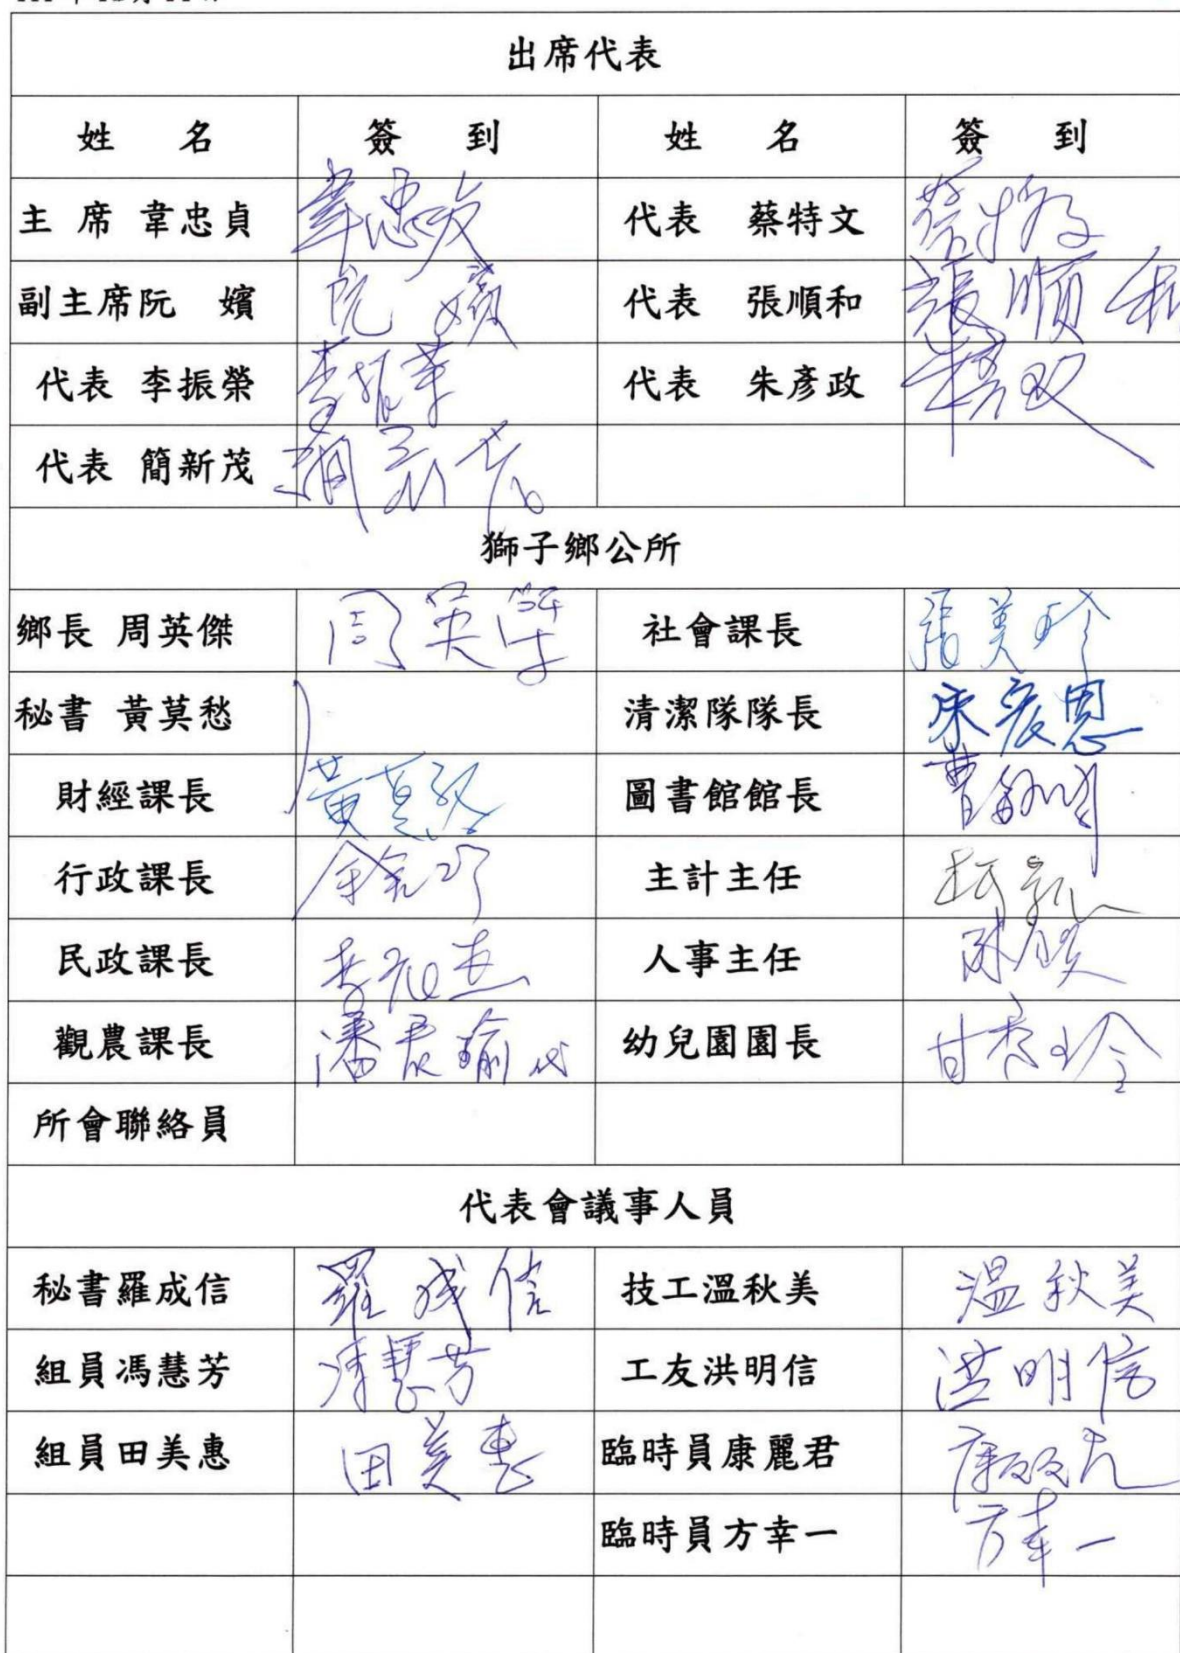 出席代表
姓 名 簽 到 姓 名 簽 到
主 席 韋忠貞 韋忠貞 代表 蔡特文 蔡特文
副主席阮 嬪 阮 嬪 代表 張順和 張順和
代表 李振榮 李振榮 代表 朱彥政 朱彥政
代表 簡新茂 簡新茂
獅子鄉公所
鄉長 周英傑 周英傑 社會課長 張美玲
秘書 黃莫愁 清潔隊隊長 宋宸恩
財經課長 黃莫愁 圖書館館長
行政課長 主計主任
民政課長 人事主任
觀農課長 潘君瑜代 幼兒園園長 甘秀玲
所會聯絡員
代表會議事人員
秘書羅成信 羅成信 技工溫秋美 温秋美
組員馮慧芳 馮慧芳 工友洪明信 洪明信
組員田美惠 田美惠 臨時員康麗君 康麗君
臨時員方幸一 方幸一